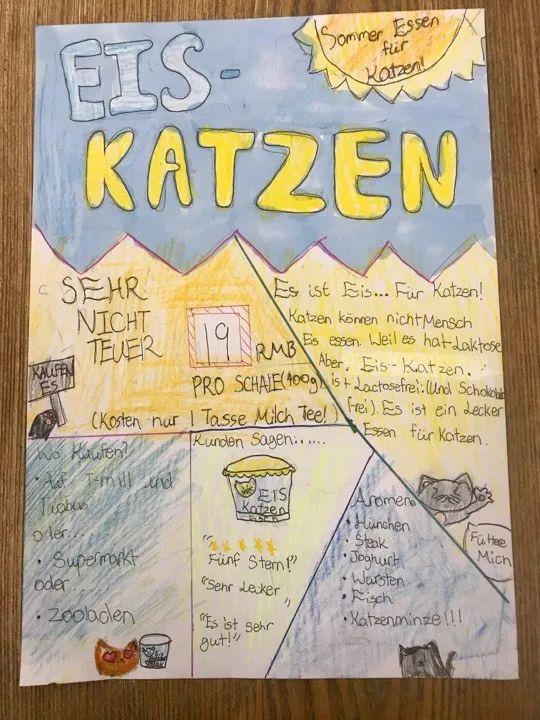 Sommer Essen
für
Katzen!
EIS-
KATZEN
SEHR
NICHT
TEUER
19
RMB
PRO SCHALE(400g)
(Kosten nur 1 Tasse Milch Tee!)
KAUFEN
ES
Es ist Eis... Für Katzen!
Katzen können nicht Mensch
Eis essen. Weil es hat Laktose
Aber, Eis-Katzen.
ist Lactosefrei.(Und Schokolade
frei). Es ist ein Lecker
Essen für Katzen.
Wo Kaufen?
• Auf T-mill und
Tiabao
oder......
• Supermarkt
oder......
• Zooladen
Kunden Sagen.....
EIS
Katzen
"
Fünf Stern!"
"Sehr Lecker"
"Es ist sehr
gut!"
Aromen:
• Hünchen
• Steak
• Joghurt
• Wursten
• Fisch
• Katzenminze!!!
Füttere
Mich